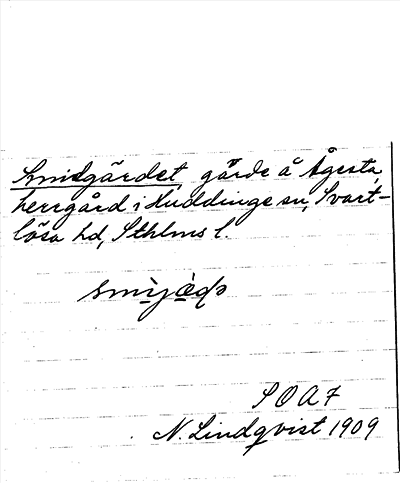 Smidgärdet, gärde å Ågesta,
herrgård i Huddinge sn, Svart-
lösa hd, Sthlms l.
SOAF
N. Lindqvist 1909